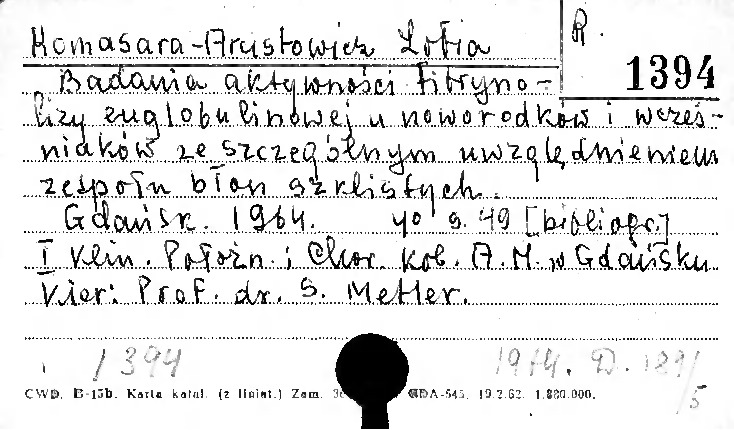 Komasara-Arustowicz Zofia
R.
1394
Badania aktywności fibryno-
lizy euglobulinowej u noworodków i wcześ-
niaków ze szczególnym uwzględnieniem
zespołu błon szklistych.
Gdańsk. 1964. 4° s. 49 [bibliogr.]
I Klin. Położn. i Chor. kob. A.M. w Gdańsku
Kier: Prof. dr. S. Metler.
1394
1974. D. 189/5
CWD. B-15b. Karta katal. (z liniat.) Zam. GDA-545. 19.2.62. 1.880.000.